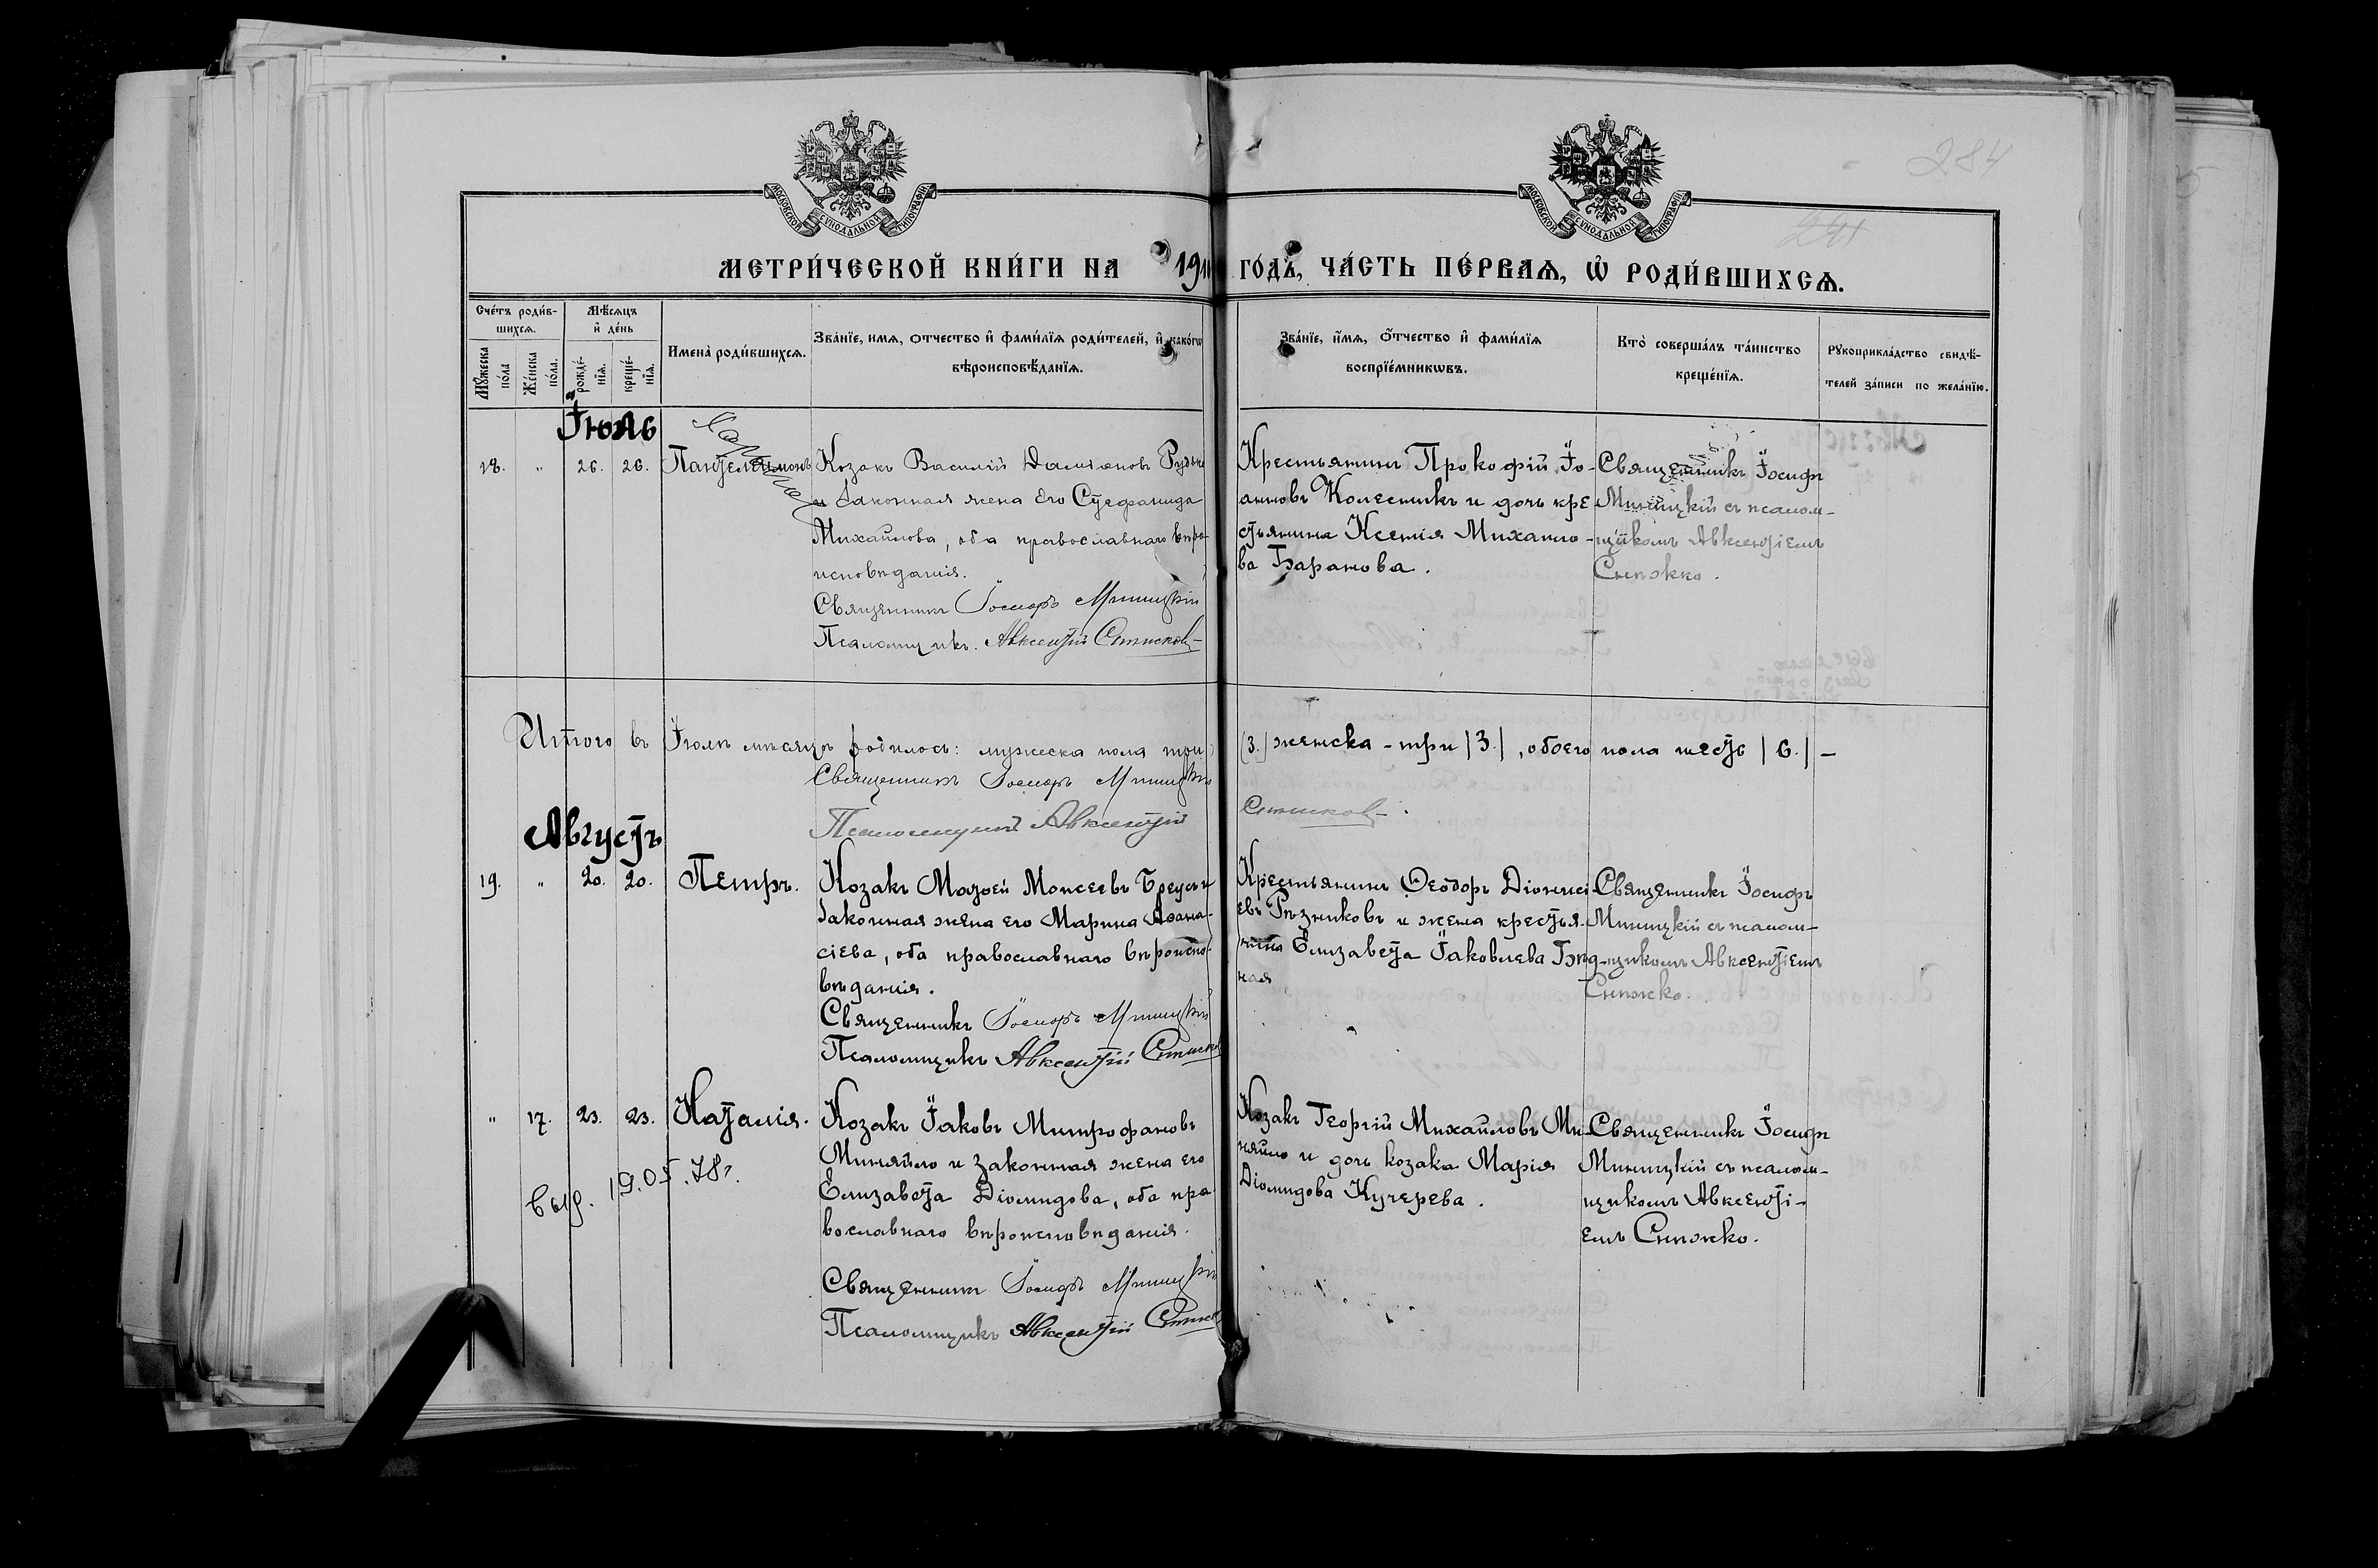 284
241
МОСКОВСКОЙ СѴНОДАЛЬНОЙ ТИПОГРАФІИ
МОСКОВСКОЙ СѴНОДАЛЬНОЙ ТИПОГРАФІИ
МЕТРИ́ЧЕСКОЙ КНИ́ГИ НА 191 ГО́ДЪ, ЧА́СТЬ ПЕ́РВАѦ, Ѿ РОДИ́ВШИХСѦ.
Сче́тъ роди́в-
шихсѧ.
Мꙋ́жеска по́ла
Же́нска по́ла.
Мѣ́сѧцъ
и҆ де́нь
рожде́-
нїѧ.
креще́-
нїѧ.
Имена̀ роди́вшихсѧ.
Зва́нїе, имѧ, ѻтчество и҆ фами́лїѧ роди́телей, и҆ како́гѡ
вѣроисповѣ́данїѧ.
Зва́нїе, и҆́мѧ, ѻ҆́тчество и҆ фами́лїѧ
воспрїе́мникѡвъ.
Кто̀ соверша́лъ та́инство
креще́нїѧ.
Рꙋкоприкла́дство свидѣ́-
телей за́писи по жела́нїю.
Іюль
18. " 26. 26. Пантелеимонъ
Козакъ Василій Даміановъ
и законная жена его Стефанида
Михайлова, оба православнаго вѣро-
исповѣданія.
Священникъ Іосифъ Миницкій
Псаломщикъ Авксентій
Крестьянинъ Прокофій Іо-
анновъ Колесникъ и дочь кре
стьянина Ксенія Михайло-
ва Баранова.
Священникъ Іосифъ
Миницкій съ псалом-
щикомъ Авксентіемъ
Итого въ Іюлѣ мѣсяцѣ родилось: мужеска пола три (3.) женска - три (3.), обоего пола шесть (6.) —
Священникъ Іосифъ Миницкій
Псаломщикъ Авксентій
Августъ
19. " 20. 20. Петръ.
Козакъ Моѵсей Моисеевъ Бреусъ и
законная жена его Марина Аѳана-
сіева, оба православнаго вѣроиспо-
вѣданія.
Священникъ Іосифъ Миницкій
Псаломщикъ Авксентій
Крестьянинъ Ѳеодоръ Діонисі
евъ Рѣзниковъ и жена крестья-
нина Елизавета Іаковлева Бѣд-
ная
Священникъ Іосифъ
Миницкій съ псалом-
щикомъ Авксентіемъ
" 17. 23. 23. Наталія.
выд. 19.05.78г.
Козакъ Іаковъ Митрофановъ
Миняйло и законная жена его
Елизавета Діомидова, оба пра-
вославнаго вѣроисповѣданія.
Священникъ Іосифъ Миницкій
Псаломщикъ Авксентій
Козакъ Георгій Михайловъ Ми-
няйло и дочь козака Марія
Діомидова Кучерева.
Священникъ Іосифъ
Миницкій съ псалом-
щикомъ Авксенті-
емъ